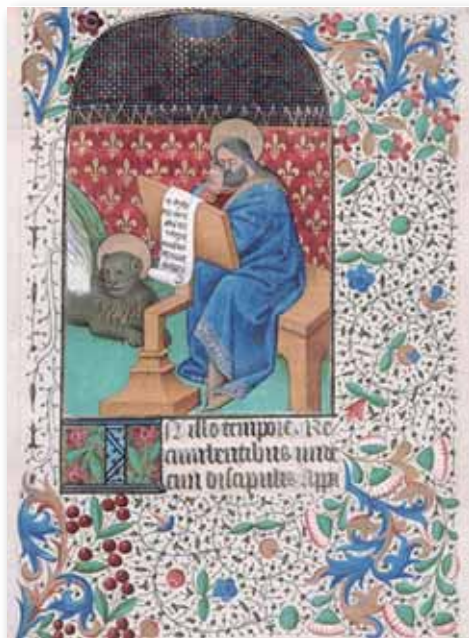 IN illo tempore. Re
cumbentibus unde
cim discipulis Appa